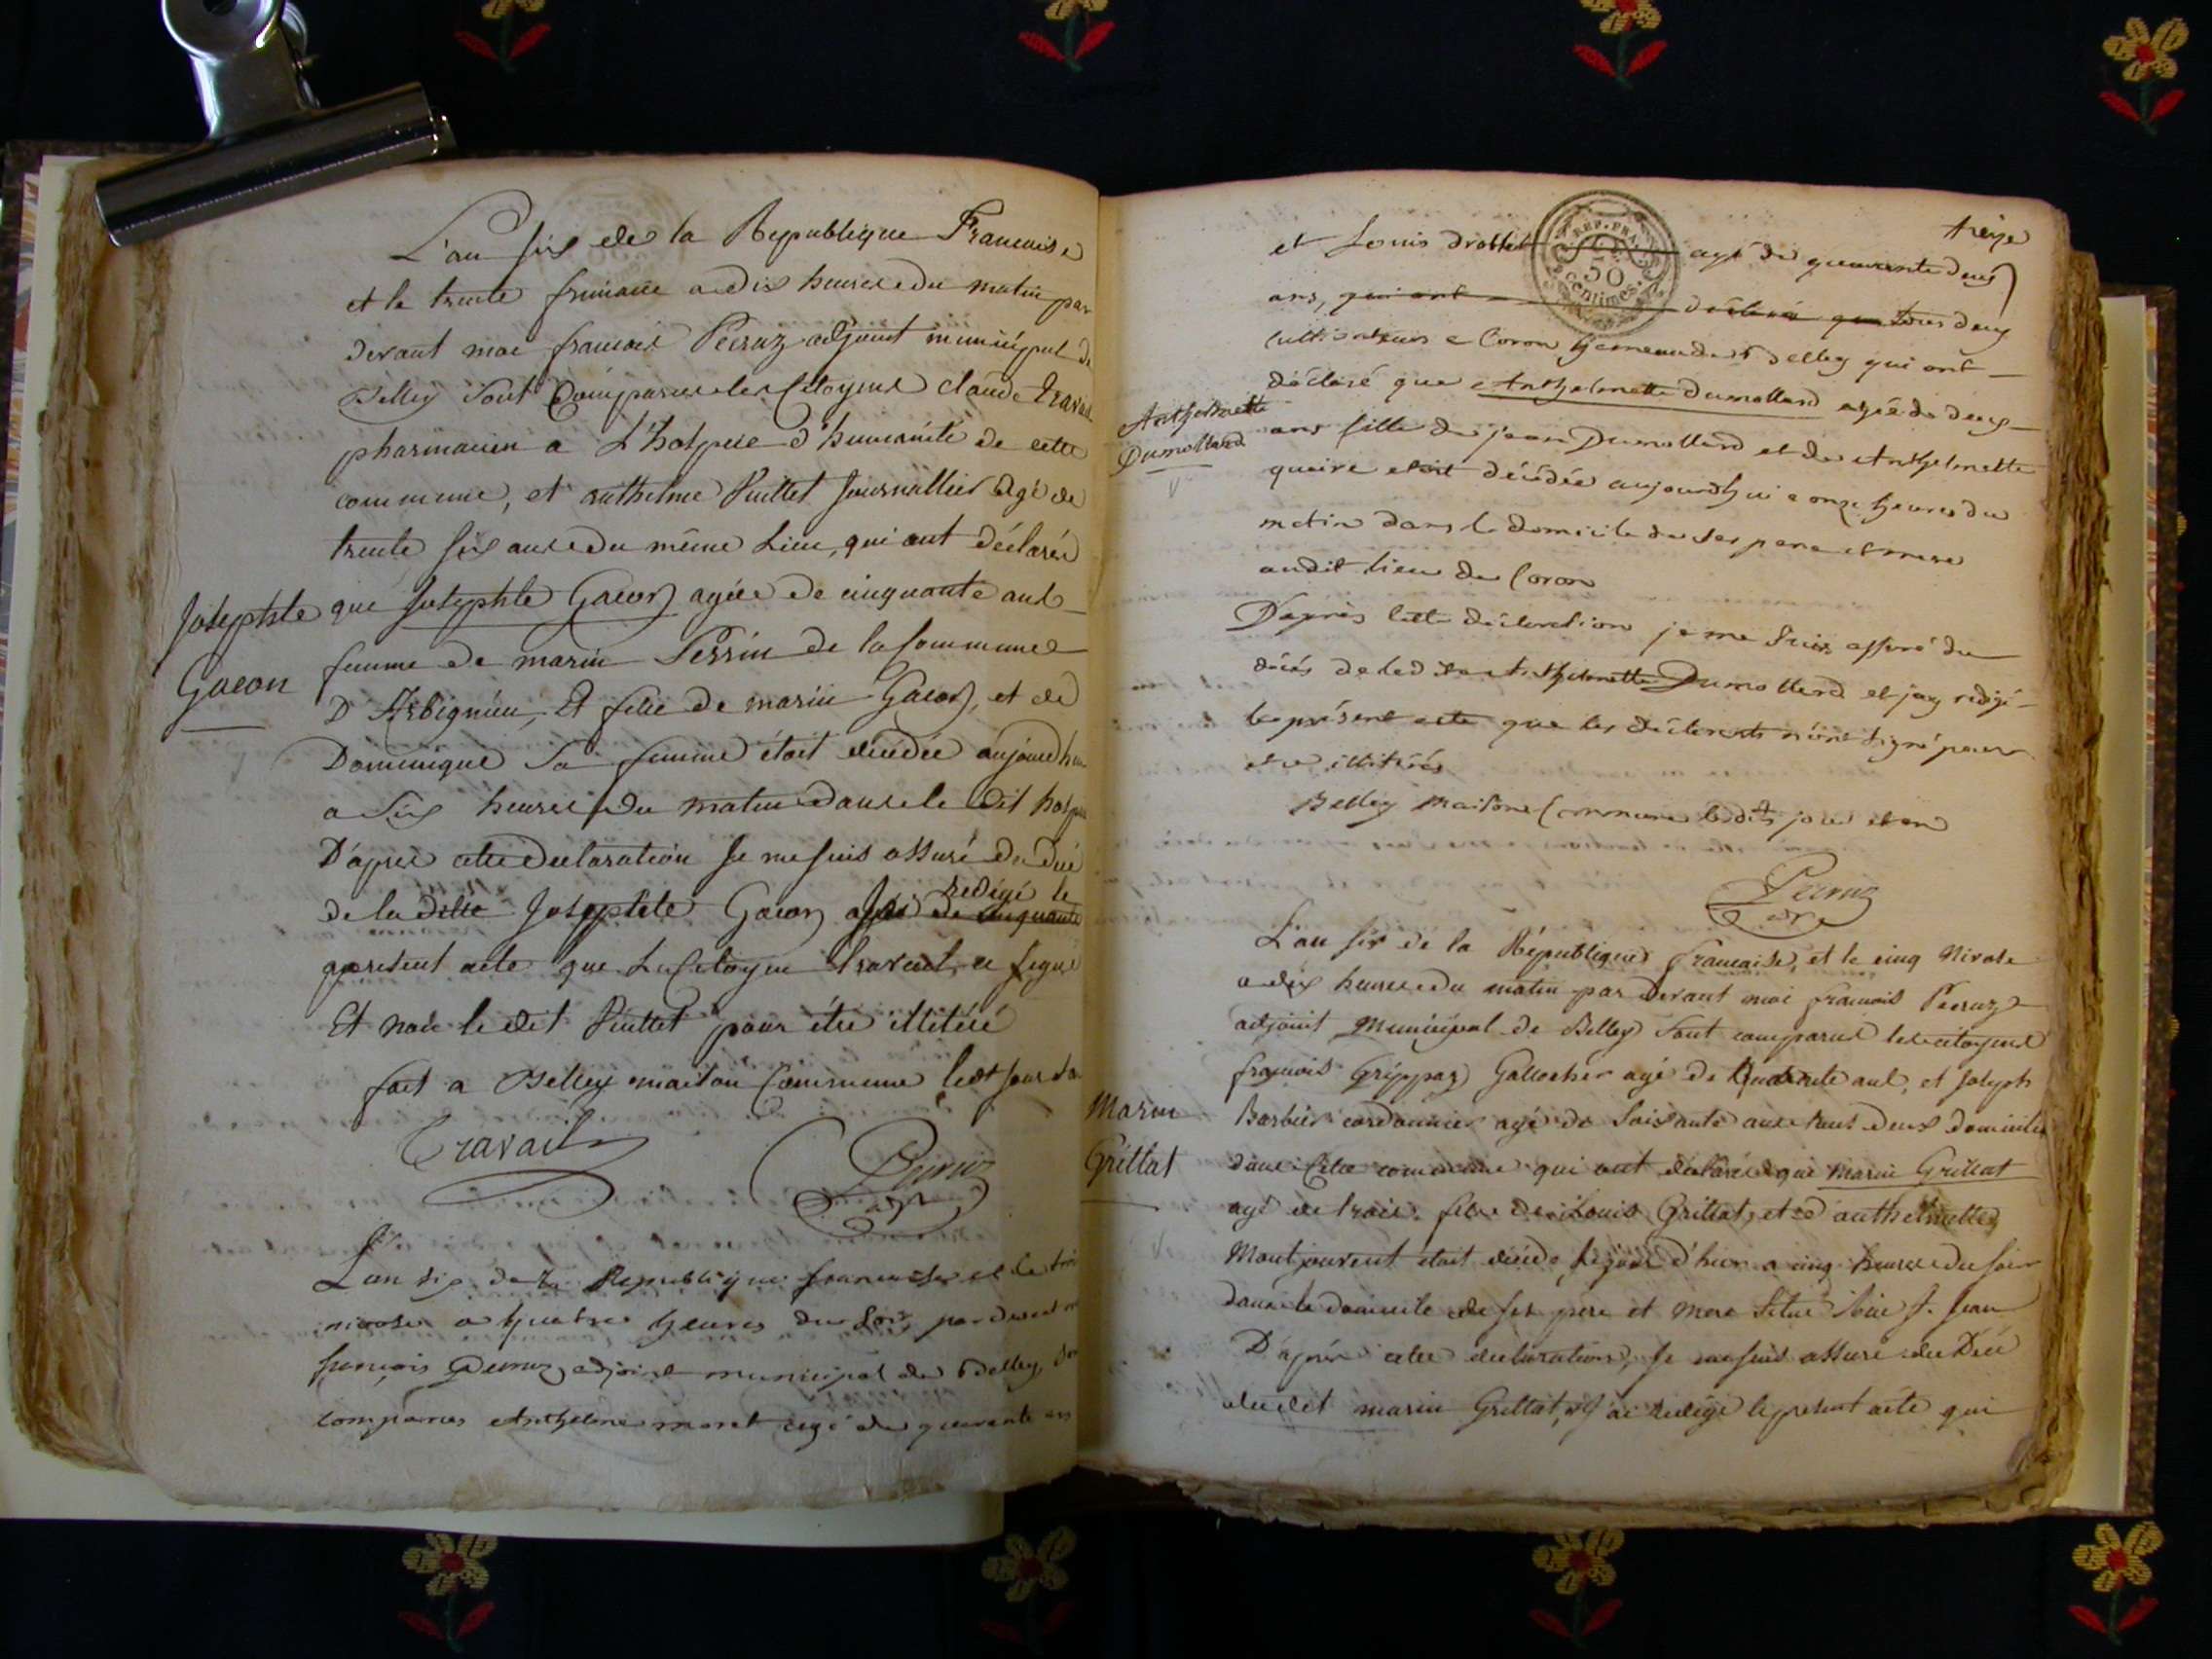 L'an six de la Republique Francaise
et le trente frimaire a dix heures du matin par
devant moi francois Peeruz adjoint municipal de
Belley sont Comparus les Citoyens claude Travail
pharmacien a L'hospice d'humanité de cette
commune, et anthelme Puillet Journallier agé de
trente six ans du même Lieu, qui ont déclarés
que Josephte Gacon agée de cinquante ans
Josephte
Gacon
femme de marin Perrin de la Commune
D'Arbignieu, Et fille de marin Gacon, et de
Dominique sa femme était décédée aujourd'hui
a six heures du matin dans le dit hospice
D'après cette declaration Je me suis assuré du décé
de la ditte Josephte Gacon
redigé le
present acte que Le Citoyen Travail a signé
Et non le dit Puillet pour être illitéré
fait a Belley maison Commune led jour
Travail
Peeruz
adj
L'an six de la Republique francaise et le
nivose a quatre heures du soir par devant
françois Peeruz adjoint municipal de Belley
comparus Anthelme moret agé de quarante
treize
REP. FRA.
50
Centimes
et Louis drollet agé de quarante deux
ans, qui ont déclaré que tous deux
cultivateurs a Coron hameau de Belley qui ont
déclaré que Anthelmette Dumollard agée de deux
Anthelmette
Dumollard
ans fille de jean Dumollard et de Anthelmette
etoit décédée aujourdhui a onze heures du
matin dans le domicile de ses pere et mere
audit lieu de Coron
D'après cette déclaration je me suis assuré du
décés de ledite Anthelmette Dumollard et jay redigé
le présent acte que les déclarants n'ont signé pour
etre illitérés
Belley maison Commune lesdits jour et an
Peeruz
adj
L'an six de la République francaise, et le cinq Nivose
a dix heures du matin par devant moi francois Peeruz
adjoint Municipal de Belley sont comparus les citoyens
francois Grippaz Gallocher agé de quarante ans, et Joseph
Barbier cordonnier agé de soixante ans tous deux domiciliés
Marin
Grillat
dans Cette commune qui ont déclarés que Marin Grillat
agé de trois, fils de Louis Grillat, et d'anthelmette
Montjouvent était décédé le jour d'hier a cinq heures du soir
dans le domicile de ses pere et mere situé rue St. Jean
D'après cette declaration, Je me suis assuré du Décé
dudit marin Grillat, et J'ai redigé le present acte qui